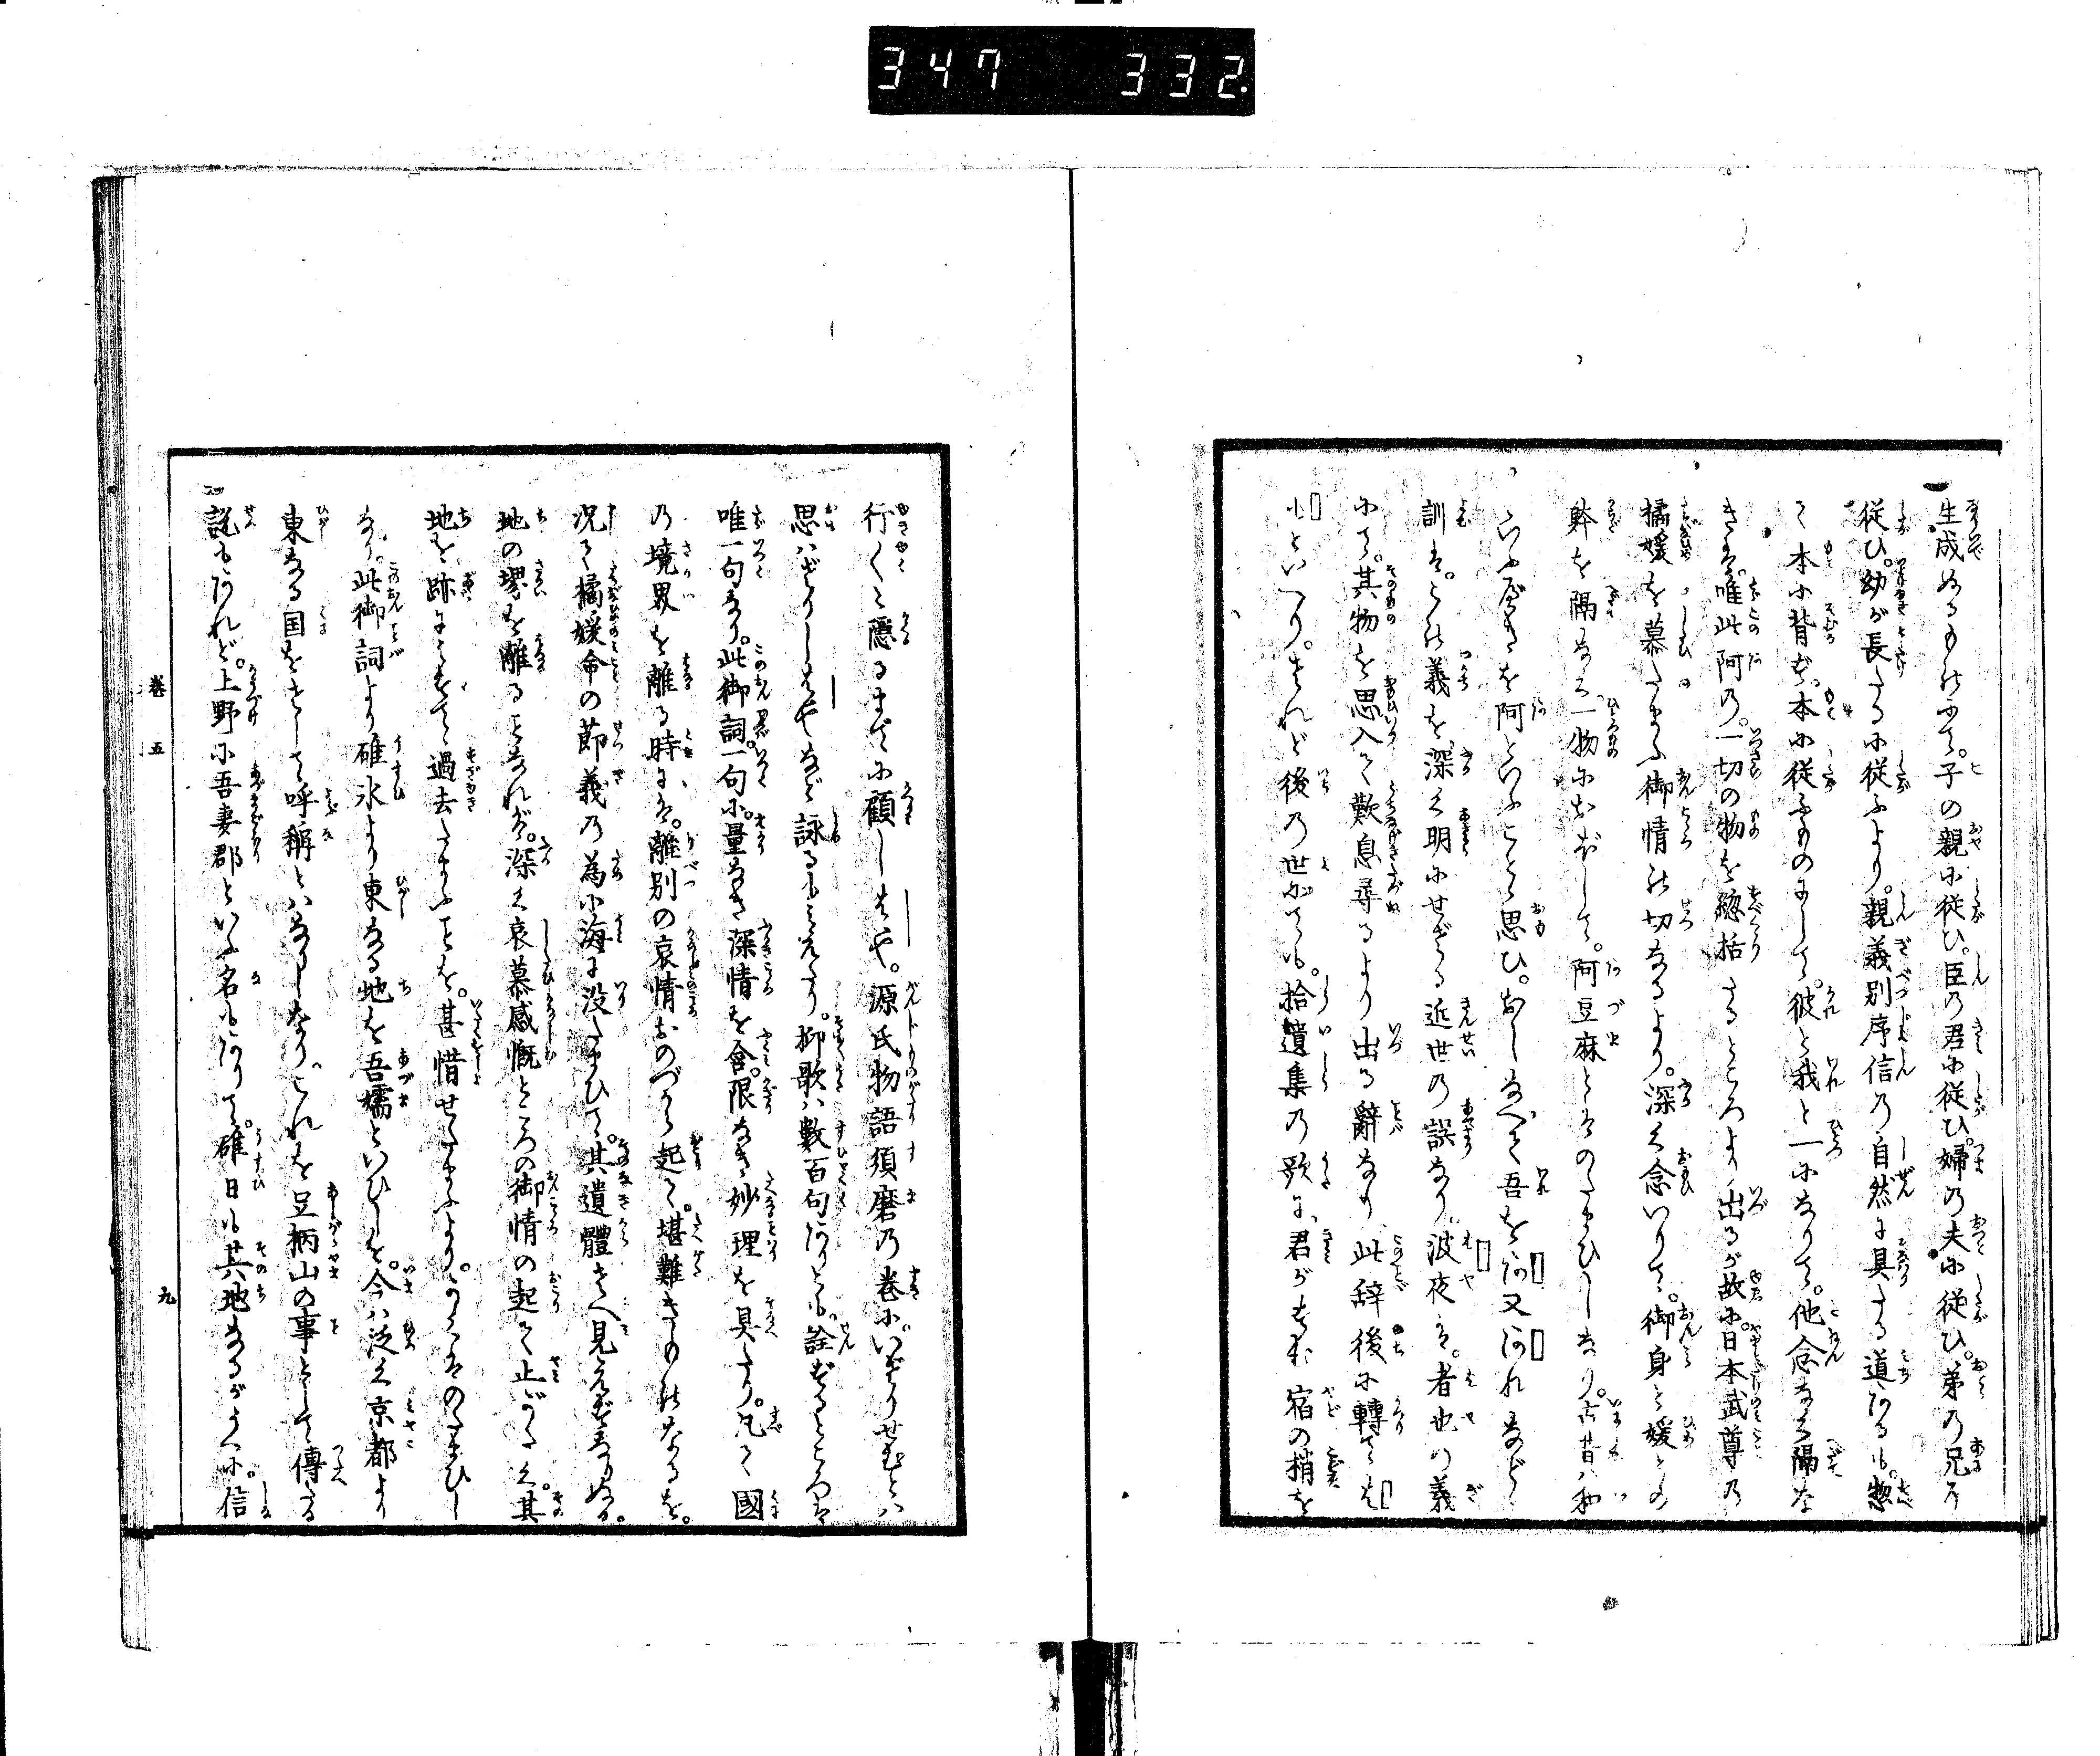 347 332.
生成ぬるものにて。子の親に従ひ。臣乃君に従ひ。婦乃夫に従ひ。弟の兄に
従ひ。幼が長たるに従ふより。親義別序信乃自然に具たる道あるも。惣
て本に背ず。本に従ふものにして。彼と我と一になりて。他念なく隔な
きを。唯此阿乃。一切の物を總括たるところより出るが故に。日本武尊乃
橘媛を慕たまふ御情の切なるより。深く念いりて。御身と媛との
幹を隔なく。一物におぼして。阿豆麻とはのたまひしなり。古昔ハ
いふ一音を阿といふことゝ思ひ。おしなべて吾を阿又阿れなど
訓は。この義を深く明にせざる近世の誤なり。波夜は。者也の義
にて。其物を思入て歎息尋るより出る辭なり。此辞後に轉てはも
といへり。されど後乃世にても。拾遺集乃歌に。君がすむ宿の梢を
行く〳〵と隱るまでに顧しはや。源氏物語須磨乃巻に。いざりせむとハ
思ハざりしはやなど詠るにみえたり。抑歌ハ數百句ありとも。詮ずるところは
唯一句なり。此御詞一句に。量なき深情を含。限なき妙理を具たり。凡て國
乃境界を離る時には。離別の哀情おのづから起て。堪難きものなるを。
况て橘媛命の節義乃為に海に没たまひて。其遺體さへ見えずなりぬる。
地の堺を離ることなれば。深く哀慕感慨ところの御情の起て止がたく。其
地を跡になして過去たまふことを。甚惜せたまふより。かくはのたまひし
なり。此御詞より碓氷より東なる地を吾嬬といひしを。今ハ泛く京都より
東なる国をさして呼稱とハなりしなり。これを足柄山の事として傳たる
説もあれど。上野に吾妻郡といふ名もありて。碓日も其地なるがうへに。信
巻五
九